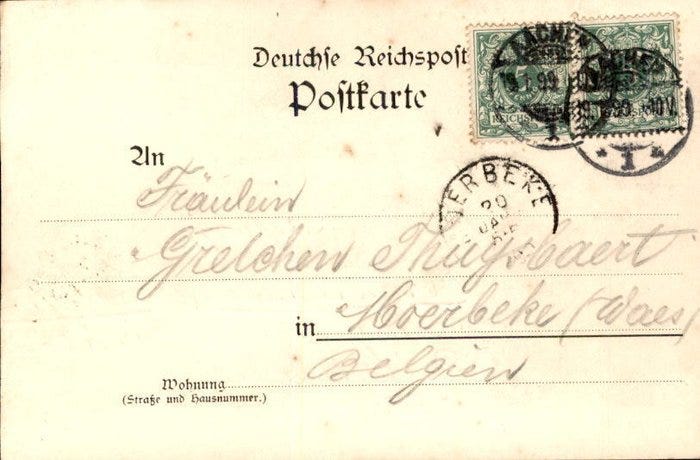 Deutsche Reichspost
Postkarte
AACHEN
19.1.99
1
AACHEN
19.1.99. 10V.
* 1 *
REICHSPOST
ERBEKE
20
An
Fräulein
Gretchen Thuysbaert
in Moerbeke (Waes)
Belgien
Wohnung
(Straße und Hausnummer.)